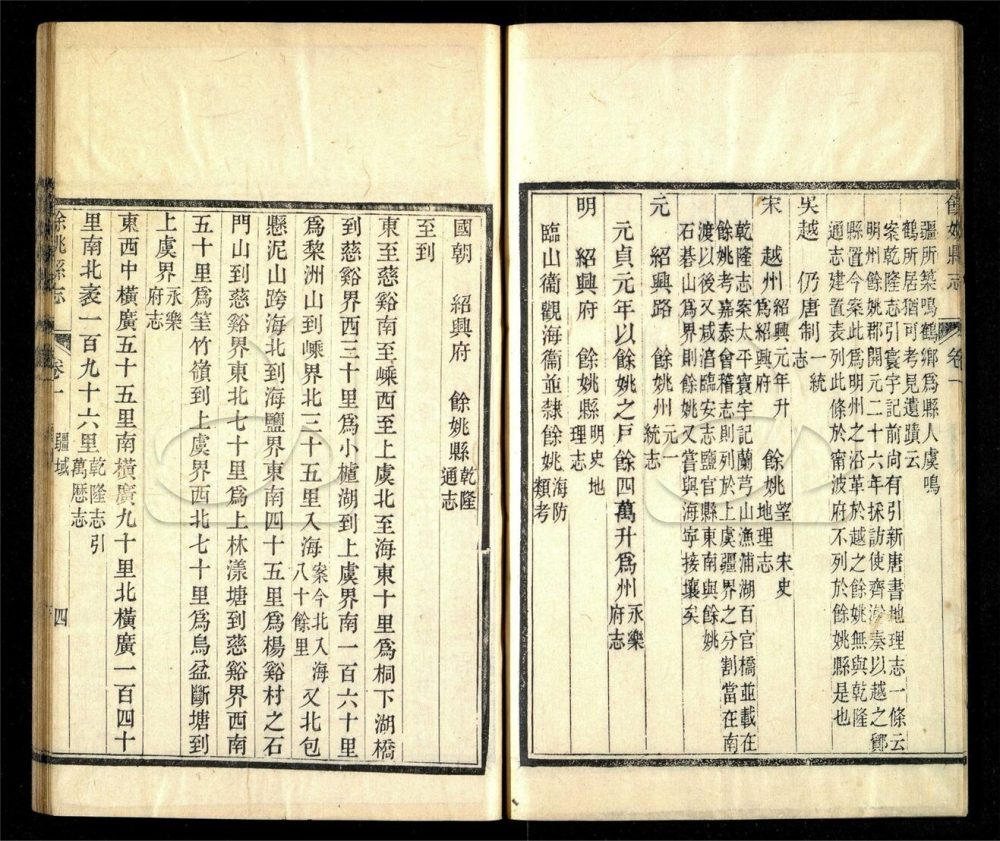 餘姚縣志 卷一
疆所築鳴鶴鄉爲縣人虞鳴
鶴所居猶可考見遺蹟云
案乾隆志引寰宇記前尚有引新唐書地理志一條云
明州餘姚郡開元二十六年採訪使齊澣奏以越之鄮
縣置今案此爲明州之沿革於越之餘姚無與乾隆
通志建置表列此條於甯波府不列於餘姚縣是也
吳越 仍唐制一統志
宋 越州紹興元年升爲紹興府 餘姚望宋史地理志
乾隆志案太平寰宇記蘭芎山漁浦湖百官橋並載在
餘姚考嘉泰會稽志則列於上虞疆界之分割當在南
渡以後又咸淳臨安志鹽官縣東南與餘姚
石碁山爲界則餘姚又嘗與海寧接壤矣
元 紹興路 餘姚州元一統志
元貞元年以餘姚之戶餘四萬升爲州永樂府志
明 紹興府 餘姚縣明史地理志
臨山衞觀海衞並隸餘姚海防類考
國朝 紹興府 餘姚縣乾隆通志
至到
東至慈谿南至嵊西至上虞北至海東十里爲桐下湖橋
到慈谿界西三十里爲小櫨湖到上虞界南一百六十里
爲棃洲山到嵊界北三十五里入海案今北入海八十餘里又北包
懸泥山跨海北到海鹽界東南四十五里爲楊谿村之石
門山到慈谿界東北七十里爲上林漾塘到慈谿界西南
五十里爲筀竹嶺到上虞界西北七十里爲烏盆斷塘到
上虞界永樂府志
東西中橫廣五十五里南橫廣九十里北橫廣一百四十
里南北袤一百九十六里乾隆志引萬厯志
餘姚縣志 卷一 疆域 四